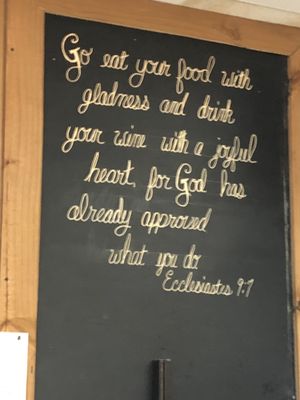 Go eat your food with
gladness and drink
your wine with a joyful
heart, for God has
already approved
what you do
Ecclesiastes 9:7